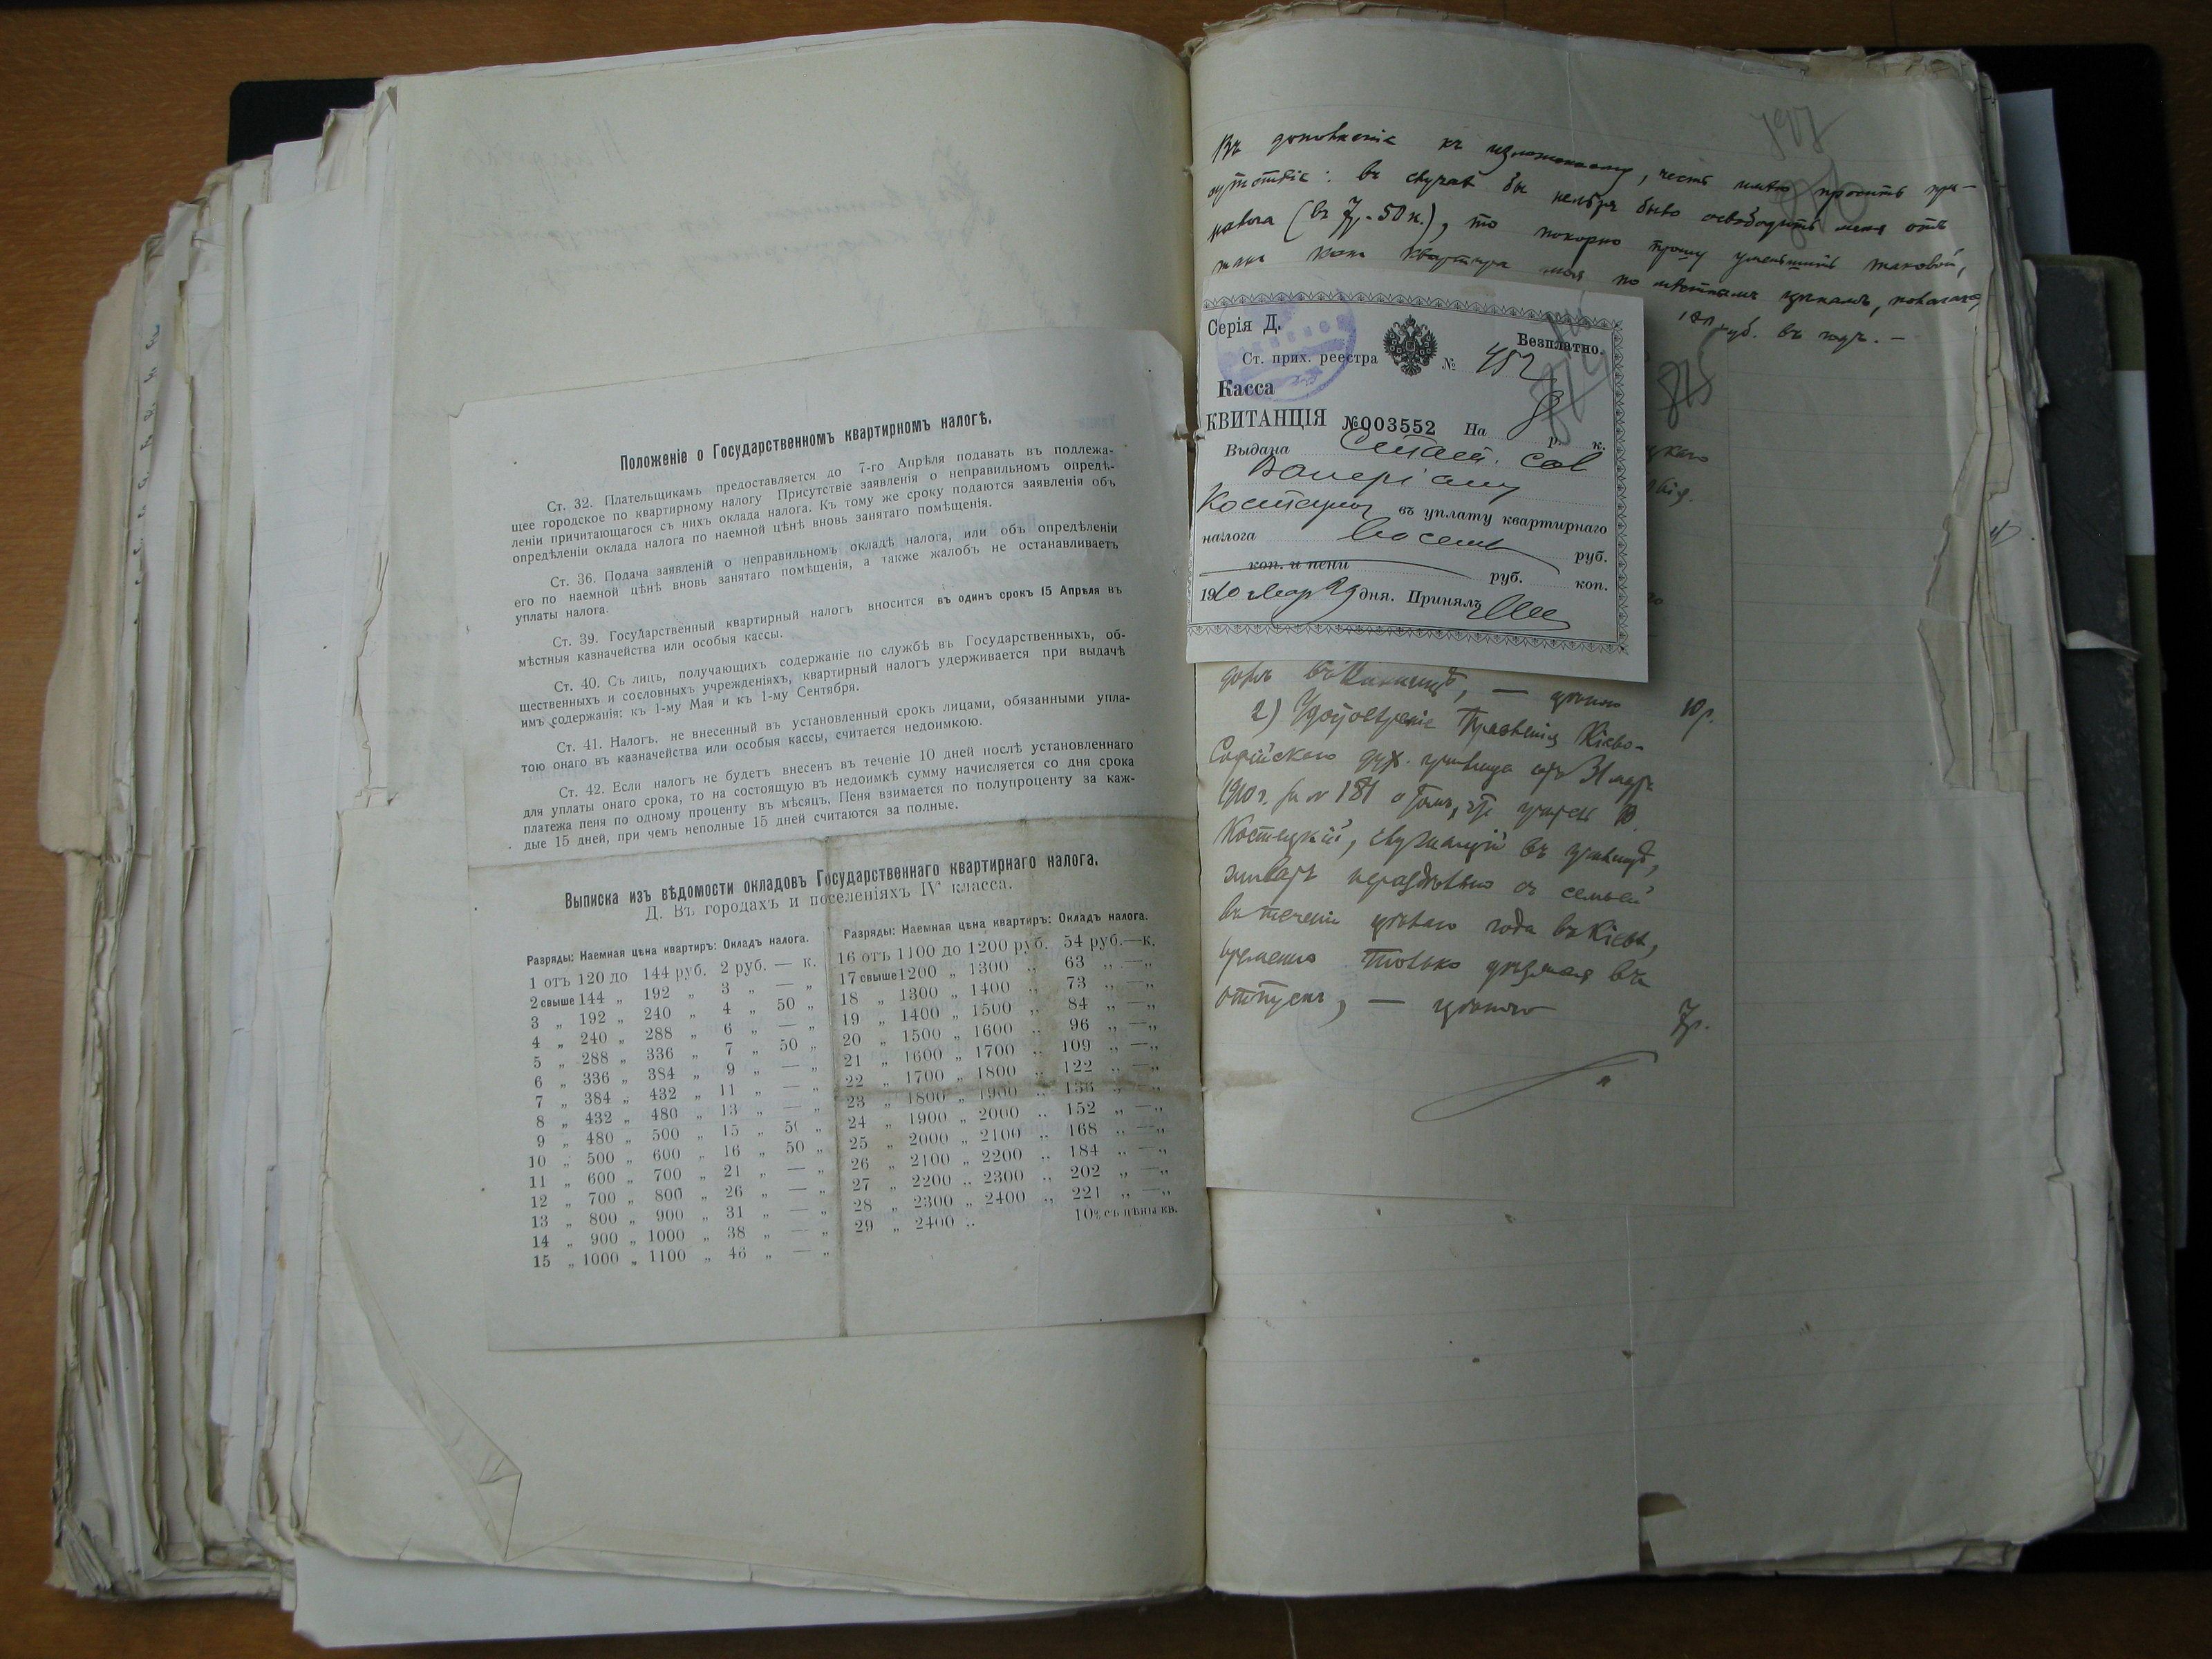 Положеніе о Государственномъ квартирномъ налогѣ.
Ст. 32. Плательщикамъ предоставляется до 7-го Апрѣля подавать въ подлежа-
щее городское по квартирному налогу Присутствіе заявленія о неправильномъ опредѣ-
леніи причитающагося съ нихъ оклада налога. Къ тому же сроку подаются заявленія объ
опредѣленіи оклада налога по наемной цѣнѣ вновь занятаго помѣщенія.
Ст. 36. Подача заявленій о неправильномъ окладѣ налога, или объ опредѣленіи
его по наемной цѣнѣ вновь занятаго помѣщенія, а также жалобъ не останавливаетъ
уплаты налога.
Ст. 39. Государственный квартирный налогъ вносится въ одинъ срокъ 15 Апрѣля въ
мѣстныя казначейства или особыя кассы.
Ст. 40. Съ лицъ, получающихъ содержаніе по службѣ въ Государственныхъ, об-
щественныхъ и сословныхъ учрежденіяхъ, квартирный налогъ удерживается при выдачѣ
имъ содержанія: къ 1-му Мая и къ 1-му Сентября.
Ст. 41. Налогъ, не внесенный въ установленный срокъ лицами, обязанными упла-
тою онаго въ казначейства или особыя кассы, считается недоимкою.
Ст. 42. Если налогъ не будетъ внесенъ въ теченіе 10 дней послѣ установленнаго
для уплаты онаго срока, то на состоящую въ недоимкѣ сумму начисляется со дня срока
платежа пеня по одному проценту въ мѣсяцъ. Пеня взимается по полупроценту за каж-
дые 15 дней, при чемъ неполные 15 дней считаются за полные.
Выписка изъ вѣдомости окладовъ Государственнаго квартирнаго налога.
Д. Въ городахъ и поселеніяхъ IV класса.
Разряды: Наемная цѣна квартиръ: Окладъ налога.
1 отъ 120 до 144 руб. 2 руб. — к.
2 свыше 144 „ 192 „ 3 „ — „
3 „ 192 „ 240 „ 4 „ 50 „
4 „ 240 „ 288 „ 6 „ — „
5 „ 288 „ 336 „ 7 „ 50 „
6 „ 336 „ 384 „ 9 „ — „
7 „ 384 „ 432 „ 11 „ — „
8 „ 432 „ 480 „ 13 „ — „
9 „ 480 „ 500 „ 15 „ 50 „
10 „ 500 „ 600 „ 16 „ 50 „
11 „ 600 „ 700 „ 21 „ — „
12 „ 700 „ 800 „ 26 „ — „
13 „ 800 „ 900 „ 31 „ — „
14 „ 900 „ 1000 „ 38 „ — „
15 „ 1000 „ 1100 „ 46 „ — „
Разряды: Наемная цѣна квартиръ: Окладъ налога.
16 отъ 1100 до 1200 руб. 54 руб.—к.
17 свыше 1200 „ 1300 „ 63 „ —„
18 „ 1300 „ 1400 „ 73 „ —„
19 „ 1400 „ 1500 „ 84 „ —„
20 „ 1500 „ 1600 „ 96 „ —„
21 „ 1600 „ 1700 „ 109 „ —„
22 „ 1700 „ 1800 „ 122 „ —„
23 „ 1800 „ 1900 „ 136 „ —„
24 „ 1900 „ 2000 „ 152 „ —„
25 „ 2000 „ 2100 „ 168 „ —„
26 „ 2100 „ 2200 „ 184 „ —„
27 „ 2200 „ 2300 „ 202 „ —„
28 „ 2300 „ 2400 „ 221 „ —„
29 „ 2400 „ 10% съ цѣны кв.
Въ дополненіе къ изложенному, честь имѣю просить при-
сутствіе: въ случаѣ бы нельзя было освободить меня отъ
налога (въ 7р.-50к.), то покорно прошу уменьшить таковой,
такъ какъ квартира моя по мѣстнымъ цѣнамъ,
руб. въ годъ. —
Серія Д.
Безплатно.
Ст. прих. реестра № 452
Касса
КВИТАНЦІЯ №003552 На 8 р. к.
Выдана Стат. сов
Валеріану
въ уплату квартирнаго
налога Восемь руб.
коп. и пени руб. коп.
1910 г Мар 29 дня. Принялъ
875
цѣною 10р.
2) Удостовѣреніе Правленія Кіево-
Софійскаго дух. училища отъ 31 мар.
1910 г. за № 181 о томъ, что учитель В.
Костецкій, служащій въ училищѣ,
живетъ нераздѣльно съ семьей
въ теченіи цѣлаго года въ Кіевѣ,
временно только уѣзжая въ
отпускъ, — цѣною 7р.